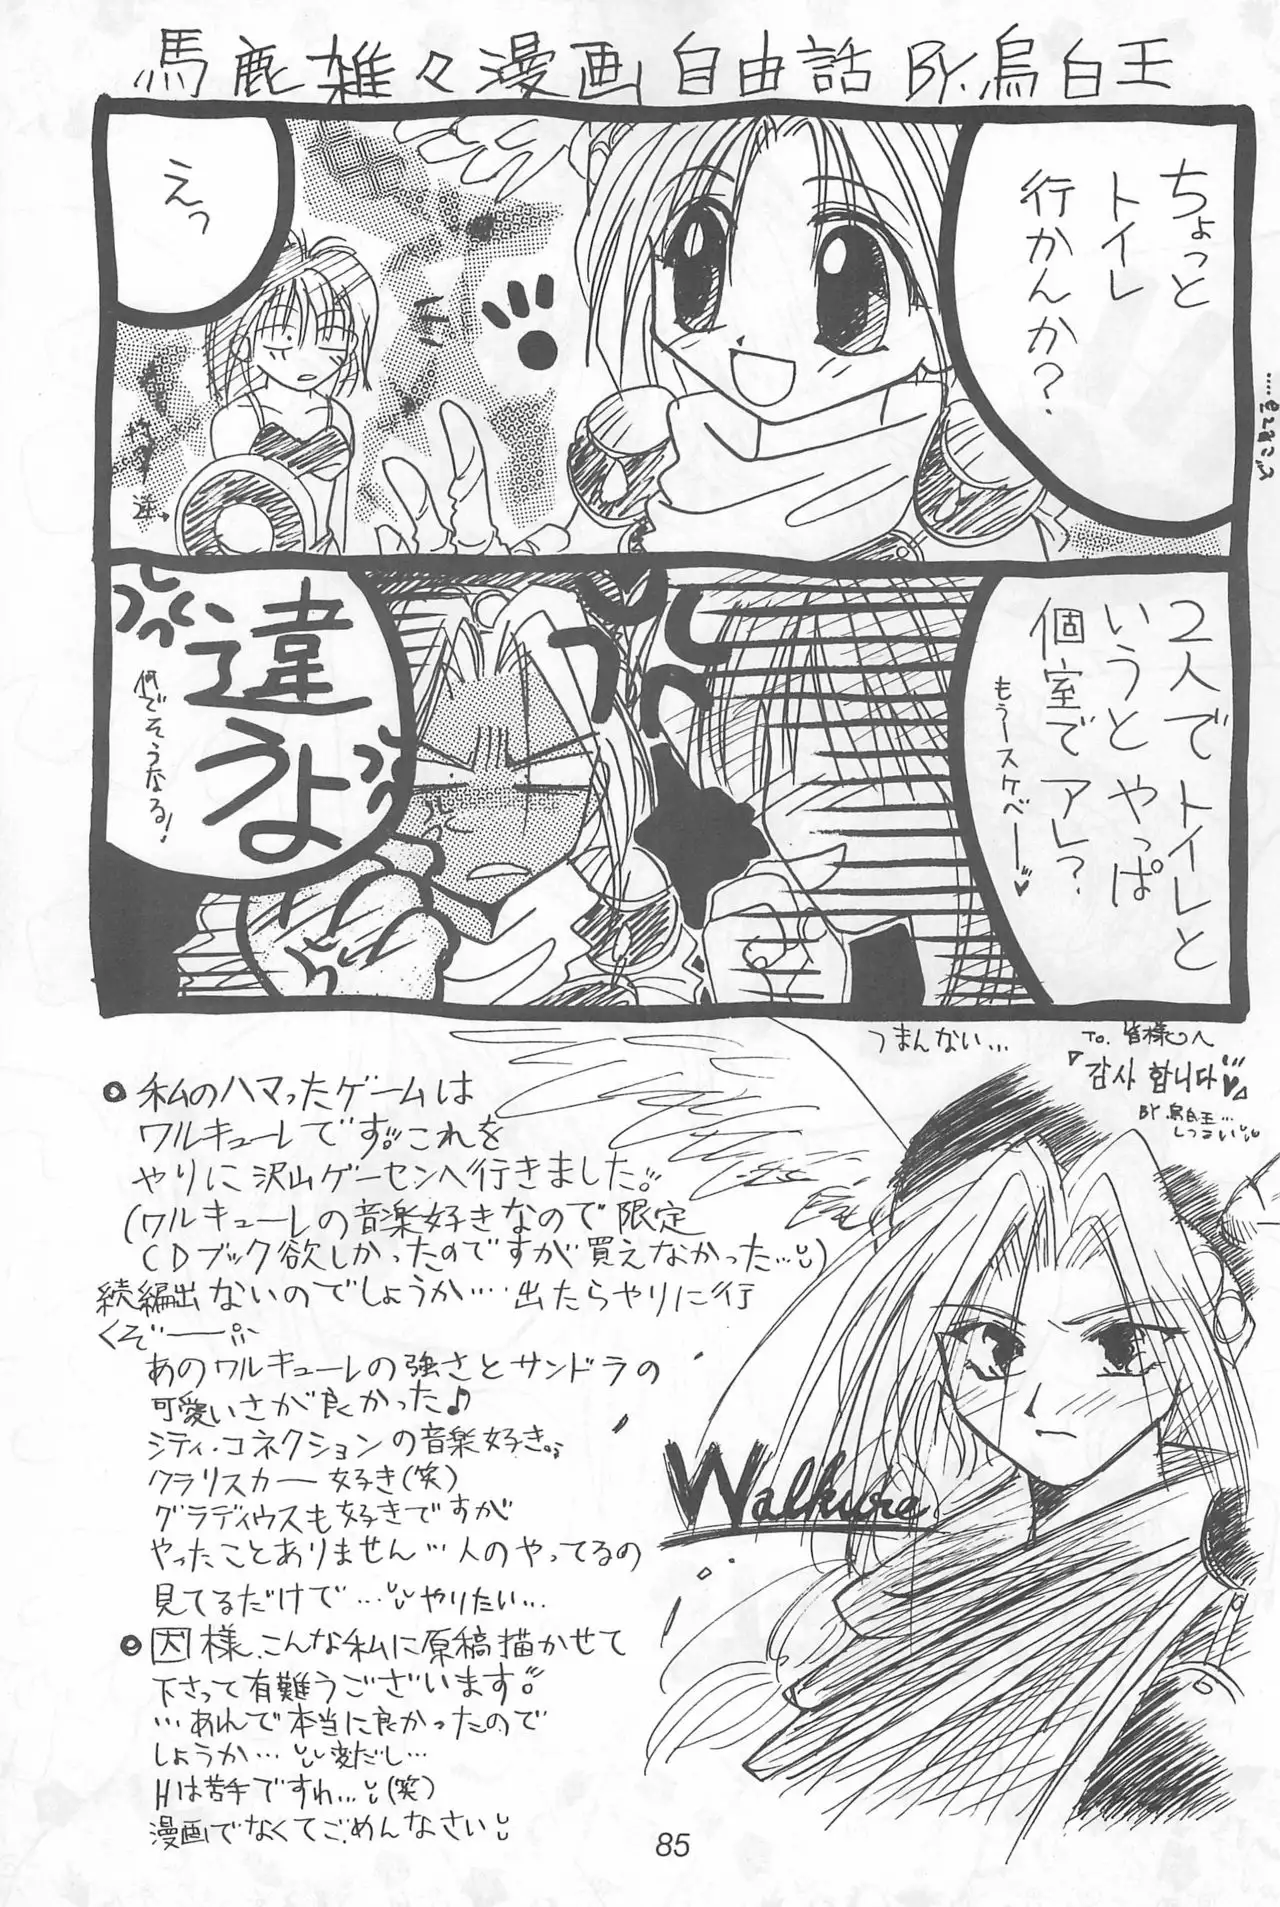 馬鹿雑々漫画 自由話 BY.烏白王
ちょっと
トイレ
行かんか?
えっ
2人でトイレと
いうとやっぱ
個室でアレ?
もうースケベー
違うよ
何でそうなる!
つまんない…
To.皆様へ
『감사 합니다』
BY.烏白王…
しつこい
私のハマったゲームは
ワルキューレです。これを
やりに沢山ゲーセンへ行きました。
(ワルキューレの音楽好きなので限定
CDブック欲しかったのですが買えなかった…)
続編出ないのでしょうか…. 出たらやりに行
くぞー
あのワルキューレの強さとサンドラの
可愛いさが良かった♪
シティ・コネクションの音楽好き。
クラリスカー好き(笑)
グラディウスも好きですが
やったことありません…人のやってるの
見てるだけで…やりたい…
因様.こんな私に原稿描かせて
下さって有難うございます。
…あんで本当に良かったので
しょうか… 変だし…
Hは苦手ですわ…(笑)
漫画でなくてごめんなさい
Walkure
85